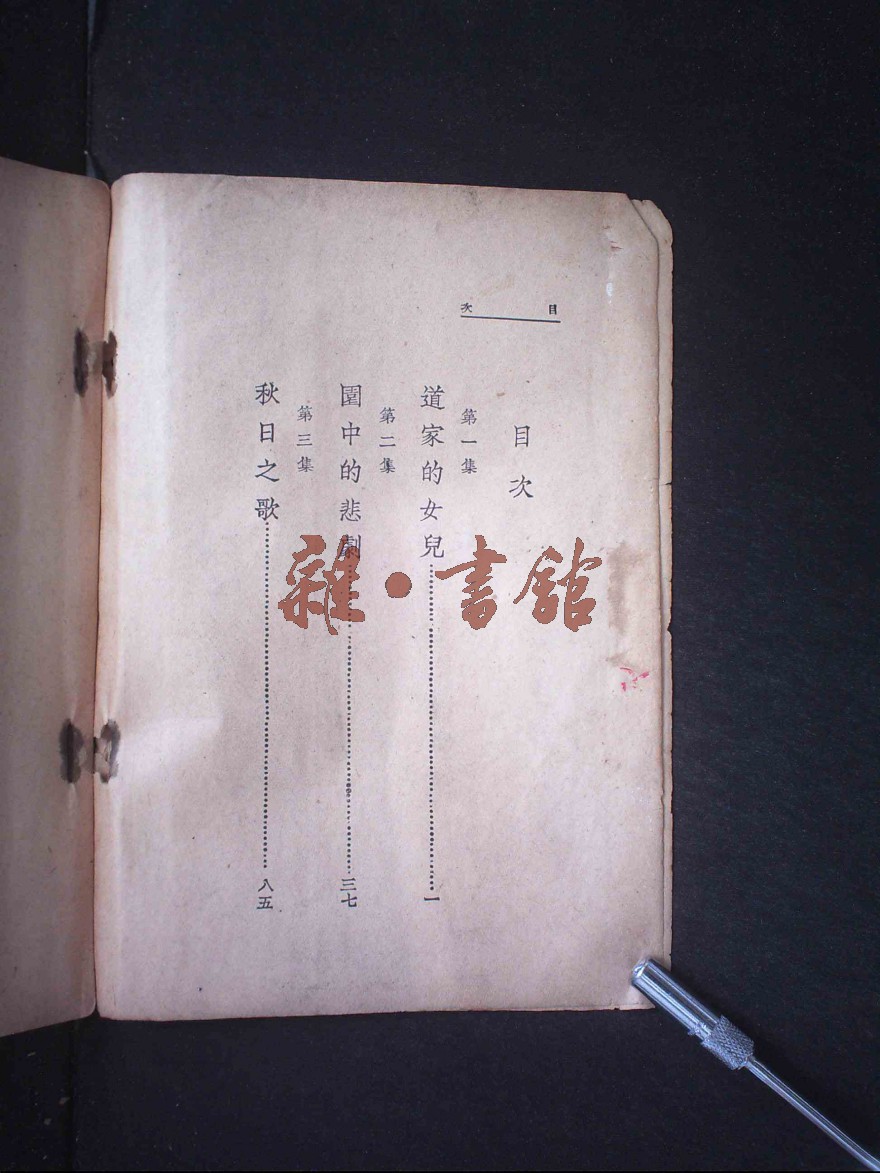 目次
目次
第一集
道家的女兒……一
第二集
園中的悲劇……三七
第三集
秋日之歌……八五
雜·書館